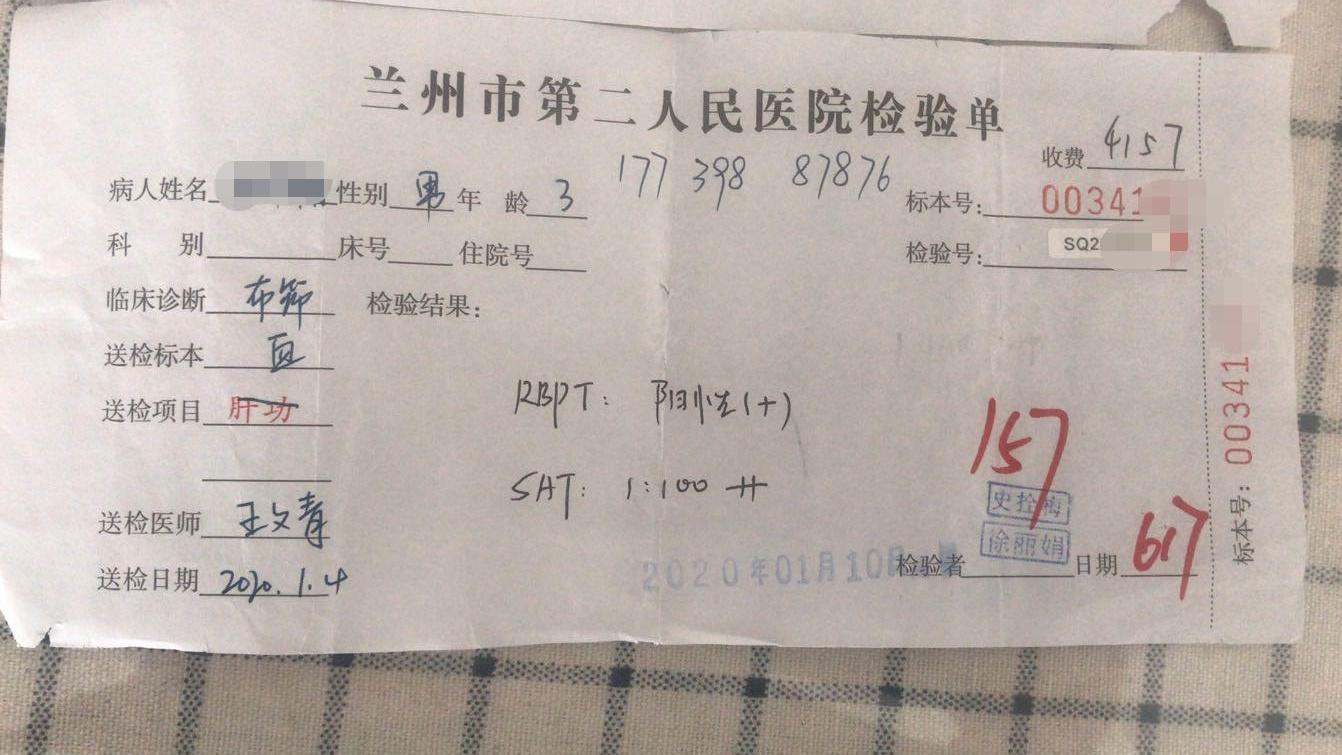 兰州市第二人民医院检验单
177 398 87876
收费 4157
病人姓名 性别 男 年 龄 3
标本号: 00341
科 别 床号 住院号
检验号: SQ2
临床诊断 布筛 检验结果:
送检标本 血
送检项目 肝功
RBPT: 阳性(+)
SAT: 1:100 ++
157
史拴梅
徐丽娟
送检医师 王文青
2020年01月10日
检验者 日期 617
送检日期 2020.1.4
标本号: 00341